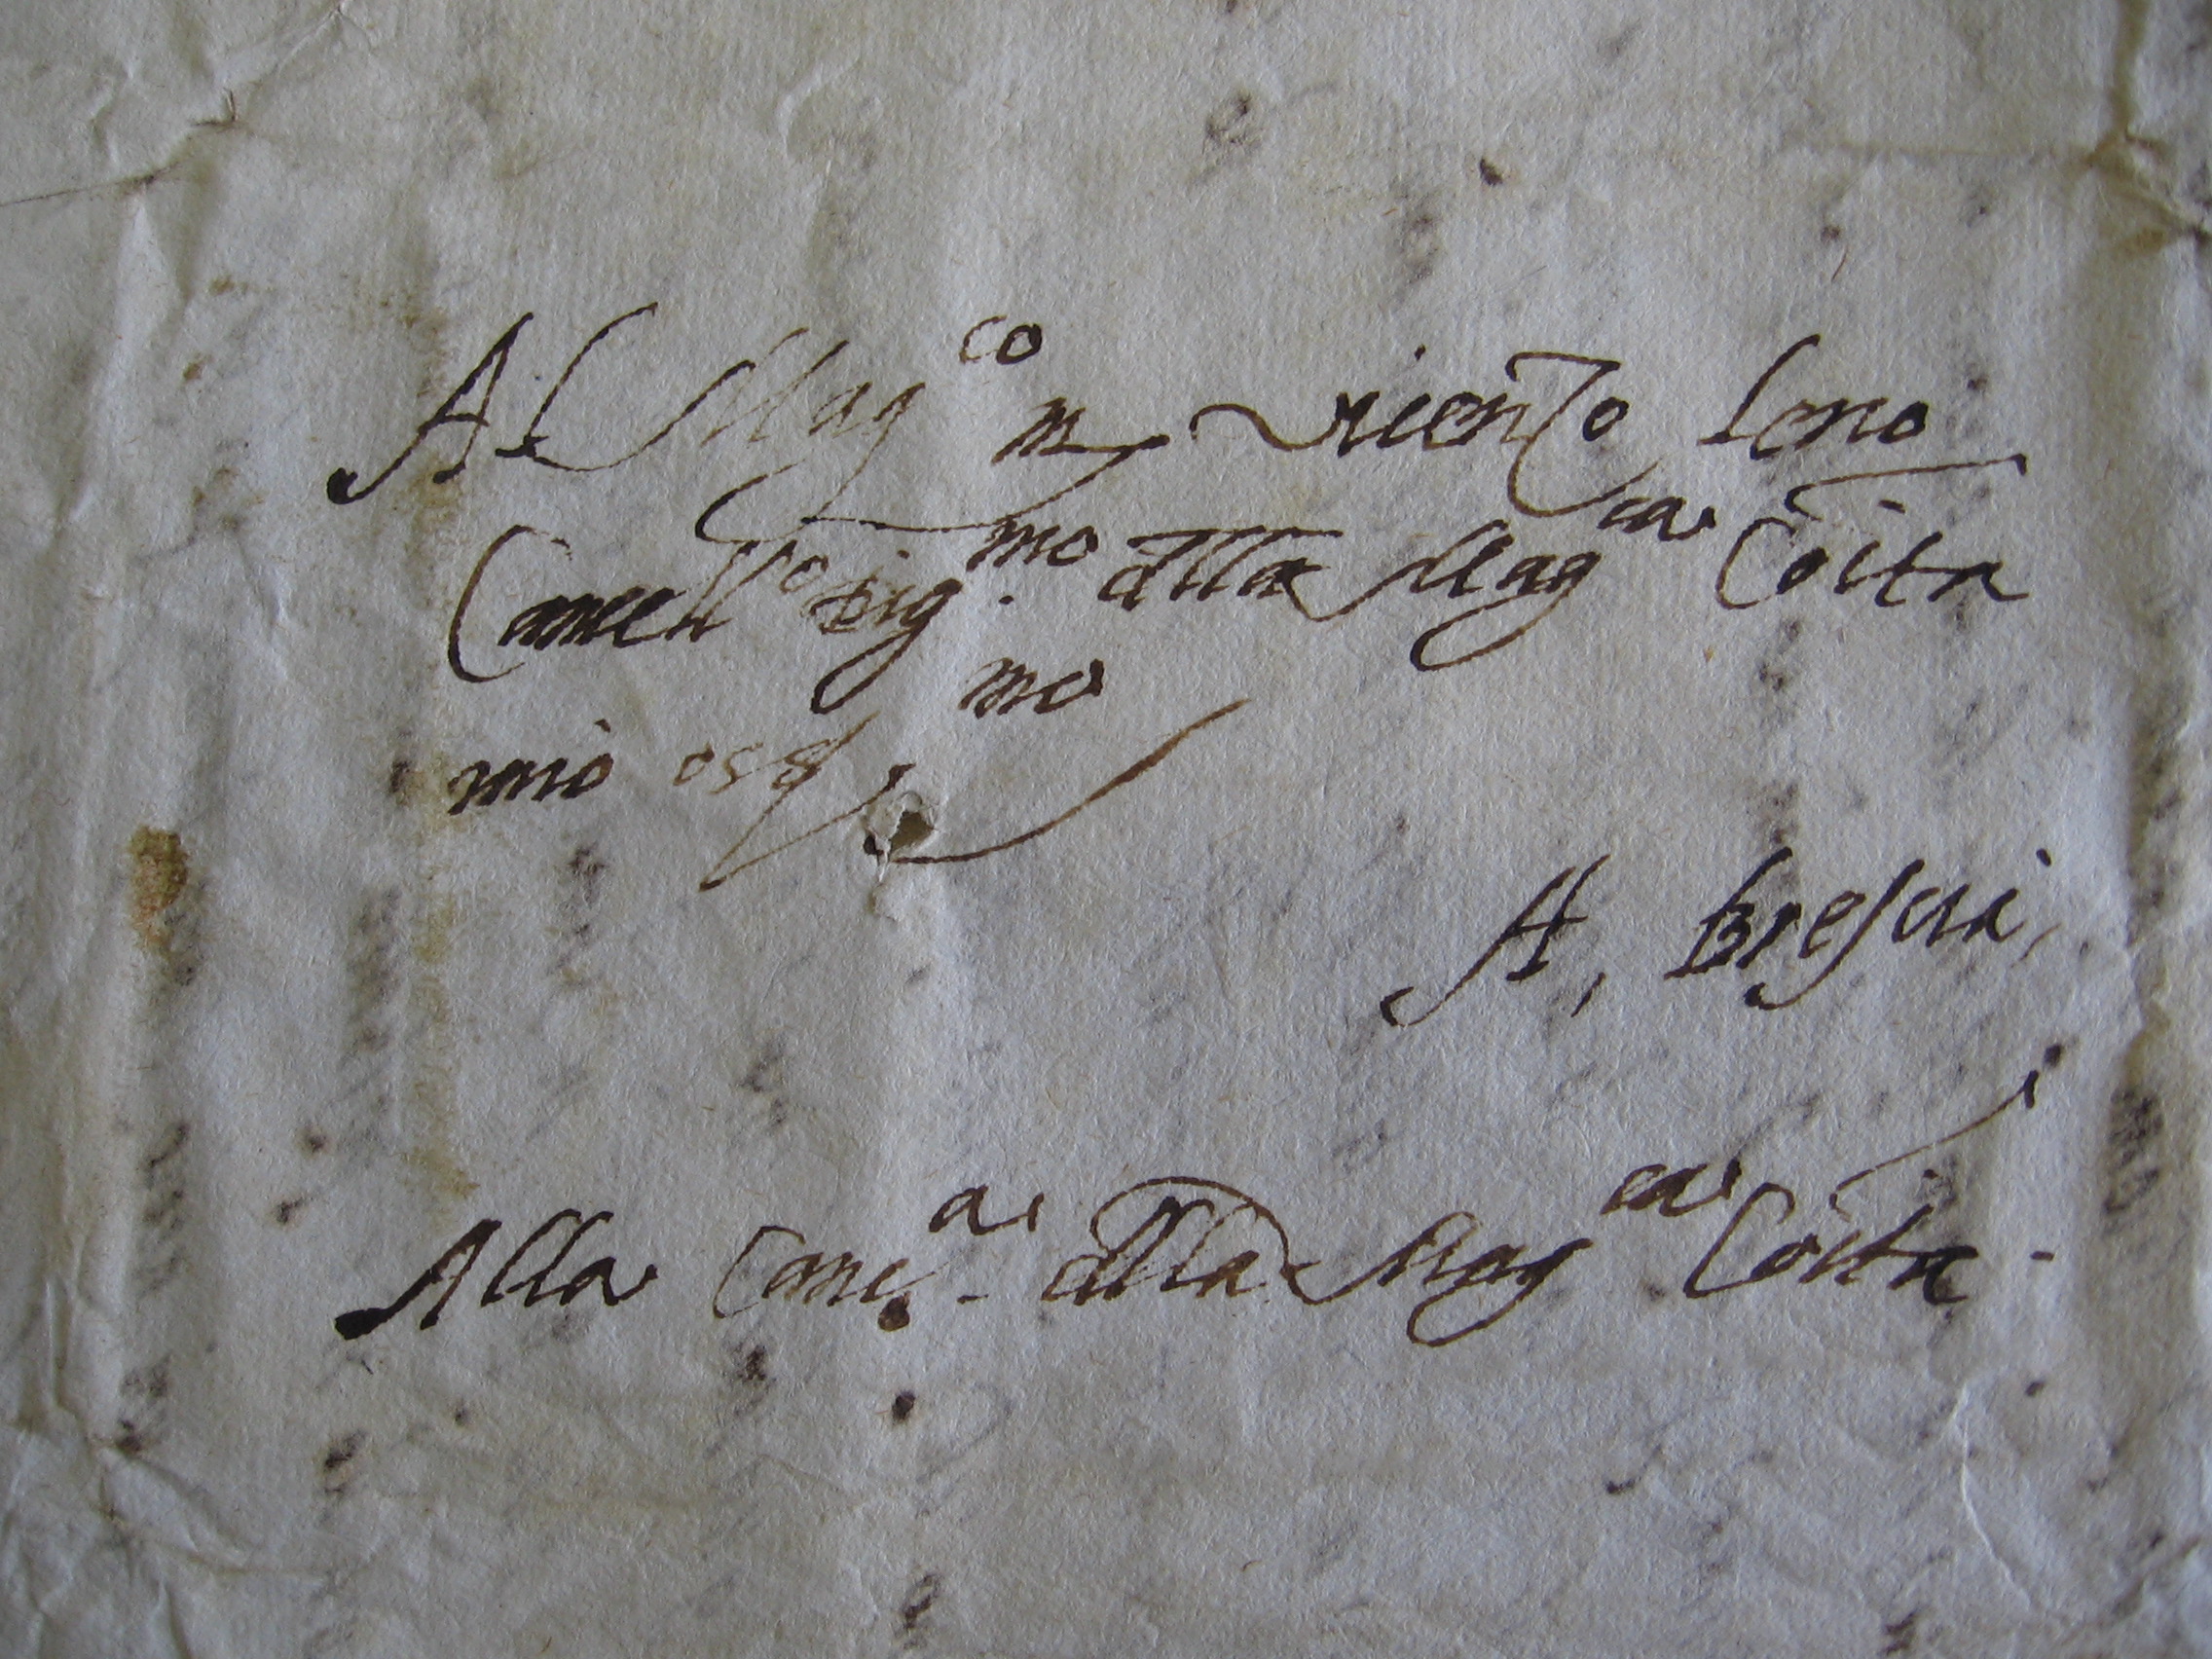 Al Mag.co m. Vicenzo Leno
Cancell.o Dig.mo della Mag.ca Coita
mio oss.mo
A, Brescia,
Alla Canc.a della Mag.ca Coita -